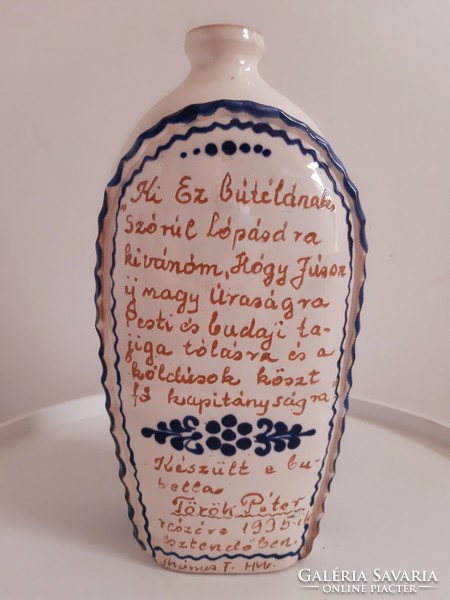 „Ki Ez bútélának
Szórúl Lópásdra
kivánóm, Hógy Jússon
ij nagy Úraságra
Pesti és budaji ta-
jiga tólásra és a
kóldúsok közt
fő kapitányságra
Készült e bu-
tella
Török Péter
részére 1935-ik
esztendőben.
T. HW.
GALÉRIA SAVARIA
ONLINE PIACTÉR